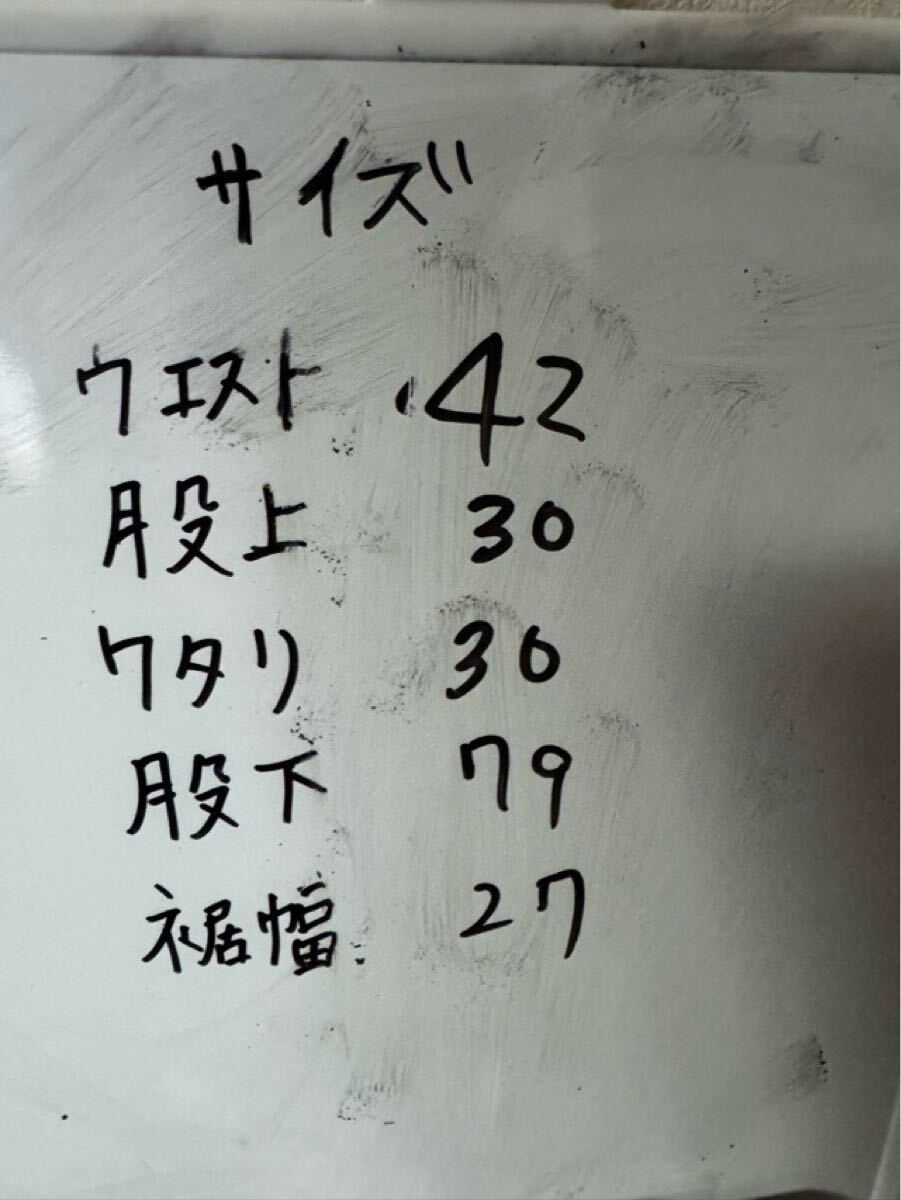 サイズ
ウエスト 42
股上 30
ワタリ 30
股下 79
裾幅 27